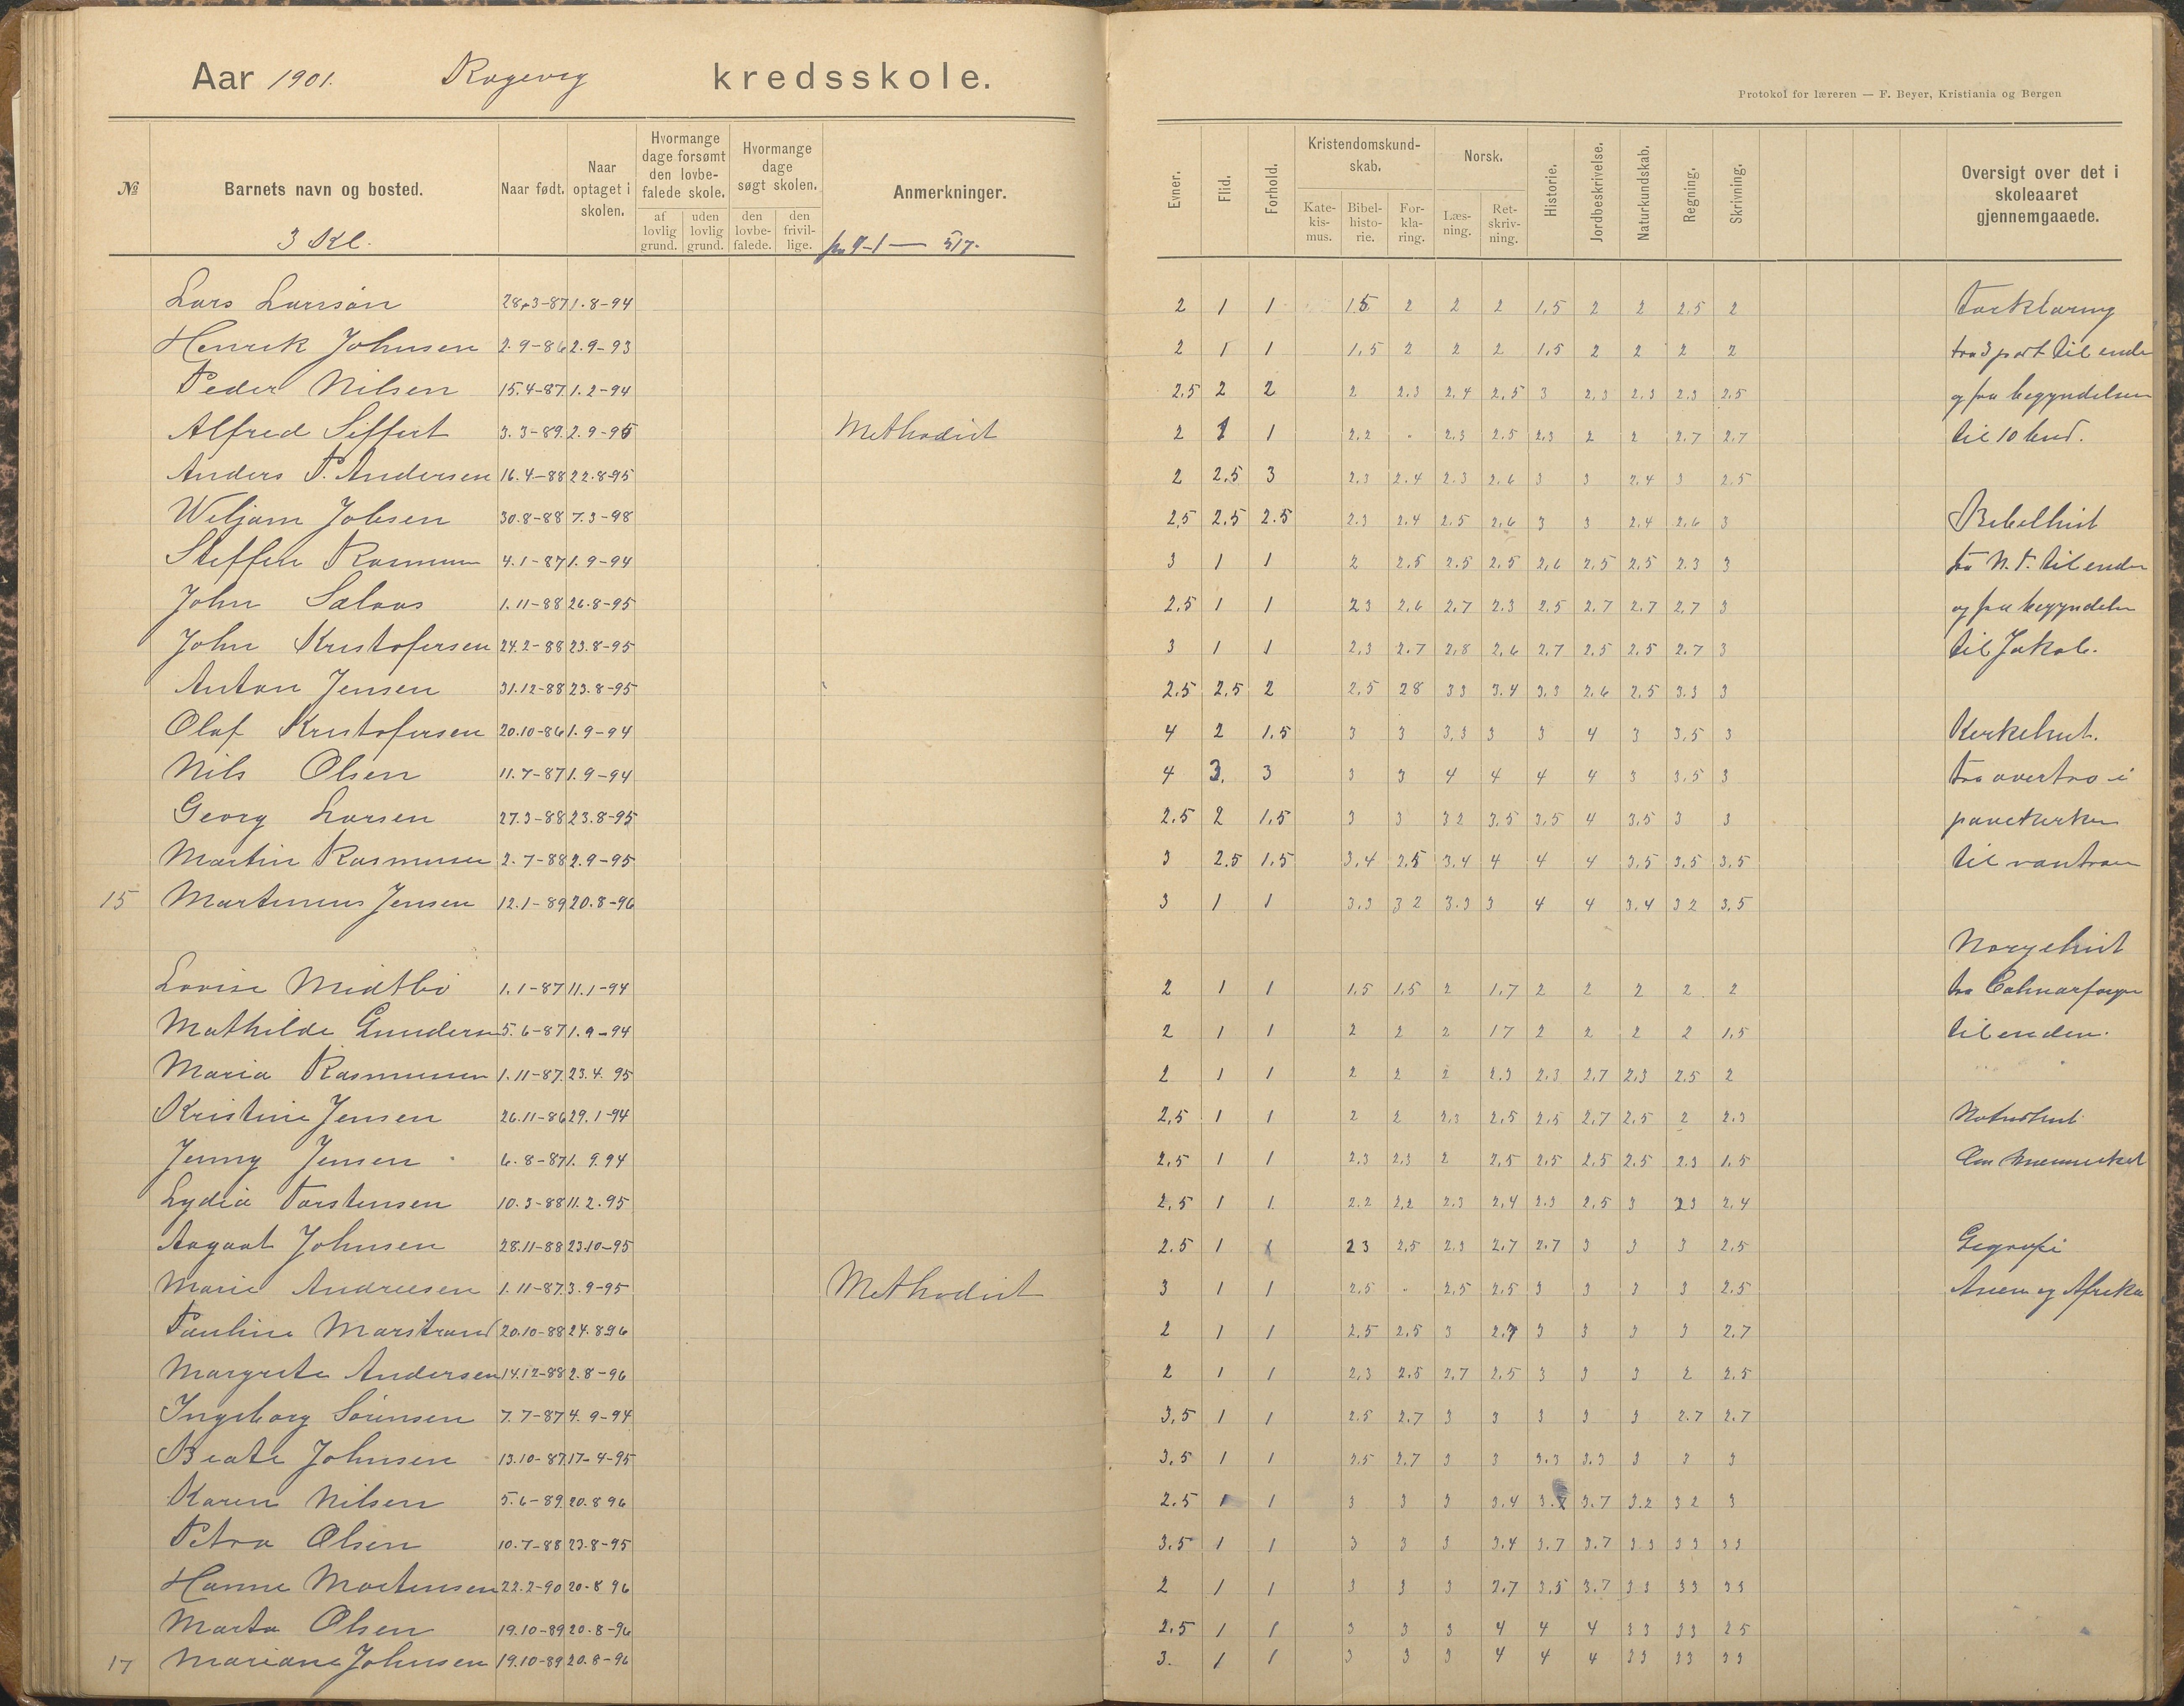 Aar 1901. Rægevig kredsskole.
Protokol for læreren — F. Beyer, Kristiania og Bergen
№ Barnets navn og bosted. Naar født. Naar optaget i skolen. Hvormange dage forsømt den lovbefalede skole. af lovlig grund. uden lovlig grund. Hvormange dage søgt skolen. den lovbefalede. den frivillige. Anmerkninger.
Evner. Flid. Forhold. Kristendomskundskab. Katekismus. Bibelhistorie. Forklaring. Norsk. Læsning. Retskrivning. Historie. Jordbeskrivelse. Naturkundskab. Regning. Skrivning. Oversigt over det i skoleaaret gjennemgaaede.
3 Kl. fra 9-1 — 5/7.
Lars Larsøn 28.3-87 1.8-94 2 1 1 1.5 2 2 2 1.5 2 2 2.5 2 Forklaring
Henrik Johnsen 2.9-86 2.9-93 2 1 1 1.5 2 2 2 1.5 2 2 2 2 fra 3 part til ende
Peder Nilsen 15.4-87 1.2-94 2.5 2 2 2 2.3 2.4 2.5 3 2.3 2.3 2.3 2.5 og fra begyndelsen
Alfred Siffert 3.3-89 2.9-95 Methodist 2 1 1 2.2 - 2.3 2.5 2.3 2 2 2.7 2.7 til 10 bud.
Anders P. Andersen 16.4-88 22.8-95 2 2.5 3 2.3 2.4 2.3 2.6 3 3 2.4 3 2.5
Weljam Jobsen 30.8-88 7.3-98 2.5 2.5 2.5 2.3 2.4 2.5 2.6 3 3 2.4 2.6 3 Bibelhist
Steffen Rasmusen 4.1-87 1.9-94 3 1 1 2 2.5 2.5 2.5 2.6 2.5 2.5 2.3 3 fra N.T. til enden
John Salaas 1.11-88 26.8-95 2.5 1 1 2 3 2.6 2.7 2.3 2.5 2.7 2.7 2.7 3 og fra begyndelsen
John Kristofersen 24.2-88 23.8-95 3 1 1 2.3 2.7 2.8 2.6 2.7 2.5 2.5 2.7 3 til Jakob.
Anton Jensen 31.12-88 23.8-95 2.5 2.5 2 2.5 2 8 3 3 3.4 3.3 2.6 2.5 3.3 3
Olaf Kristofersen 20.10-86 1.9-94 4 2 1.5 3 3 3.3 3 3 4 3 3.5 3 Kirkehist.
Nils Olsen 11.7-87 1.9-94 4 3. 3 3 3 4 4 4 4 3 3.5 3 fra overtro i
Georg Larsen 27.3-88 23.8-95 2.5 2 1.5 3 3 3 2 3.5 3.5 4 3.5 3 3 pavekirken
Martin Rasmusen 2.7-88 2.9-95 3 2.5 1.5 3.4 2.5 3.4 4 4 4 3.5 3.5 3.5 til vantroen
15 Martinius Jensen 12.1-89 20.8-96 3 1 1 3.3 3 2 3.3 3 4 4 3.4 3 2 3.5
Norgeshist
Lovise Midtbø 1.1-87 11.1-94 2 1 1 1.5 1.5 2 1.7 2 2 2 2 2 fra Calmarforgen
Mathilde Gundersen 5.6-87 1.9-94 2 1 1 2 2 2 1 7 2 2 2 2 1.5 til enden.
Maria Rasmusen 1.11-87 23.4.95 2 1 1 2 2 2 2.3 2.3 2.7 2.3 2.5 2
Kristine Jensen 26.11-86 29.1-94 2.5 1 1 2 2 2.3 2.5 2.5 2.7 2.5 2 2.3 Naturhist
Jenny Jensen 6.8-87 1.9.94 2.5 1 1 2.3 2.3 2 2.5 2.5 2.5 2.5 2.3 1.5 Om mennesket
Lydia Torstensen 10.3-88 11.2.95 2.5 1 1 2.2 2.2 2.3 2.4 2.3 2.5 3 2 3 2.4
Aagaat Johnsen 28.11-88 23.10-95 2.5 1 1 2 3 2.5 2.3 2.7 2.7 3 3 3 2.5 Gegrafi
Marie Andresen 1.11-87 3.9-95 Methodist 3 1 1 2.5 - 2.5 2.5 3 3 3 3 2.5 Asien og Afrika
Pauline Marstrand 20.10-88 24.8 96 2 1 1 2.5 2.5 3 2.7 3 3 3 3 2.7
Margrete Andersen 14.12-88 2.8-96 2 1 1 2.3 2.5 2.7 2.5 3 3 3 2 2.5
Ingeborg Sørensen 7.7-87 4.9-94 3.5 1 1 2.5 2.7 3 3 3 3 3 2.7 2.7
Beate Johnsen 13.10-87 17-4-95 3.5 1 1 2.5 2.7 3 3 3.3 3.3 3 3 3
Karen Nilsen 5.6-89 20.8 96 2.5 1 1 3 3 3 3.4 3.7 3.7 3.2 3 2 3
Petra Olsen 10.7-88 23.8-95 3.5 1 1 3 3 3 3.4 3.7 3.7 3 3 3 3 3 3
Hanne Mortensen 22.2-90 20-8 96 2 1 1 3 3 3 2.7 3.5 3.7 3 3 3 3 3 3
Marta Olsen 19.10-89 20.8-96 2.5 1 1 3 3 3 4 4 4 3 3 3 3 2 5
17 Mariane Johnsen 19.10-89 20.8-96 3. 1 1 3 3 3 4 4 4 3 3 3 3 3 3